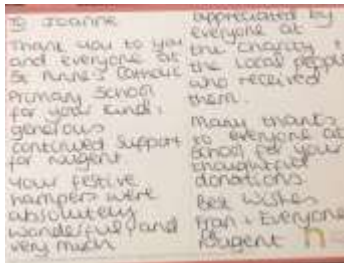 To Joanne
Thank you to you
and everyone at
St Anne's Catholic
Primary School
for your kind,
generous
continued support
for Nugent
Your festive
hampers were
absolutely
wonderful, and
very much
appreciated by
everyone at
the charity +
the local people
who received
them.
Many thanks
to everyone at
School for your
thoughtful
donations.
Best Wishes
Fran + Everyone
at
Nugent n